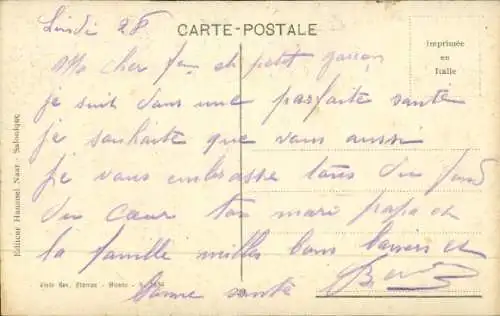 Lundi 28
CARTE-POSTALE
Imprimée
en
Italie
Ma cher fem et petit garçon
je suit dans une parfaite santé
je souhaite que vous aussi
je vous embrasse tous du fond
du cœur ton mari papa et
la famille milles bons baisers et
bonne santé
Editeur Hananel Naar - Salonique